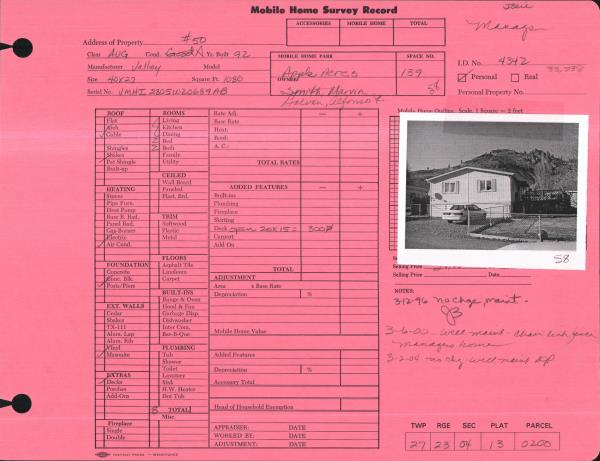 Mobile Home Survey Record
Manager
ACCESSORIES MOBILE HOME TOTAL
#50
Address of Property
Class Avg Cond. Good A Yr. Built 92
Manufacturer Valley Model
Size 40x27 Square Ft. 1080
Serial No.
MOBILE HOME PARK SPACE NO.
Apple Acres 139
OWNER
Smith, Marvin 58
Galvan, Alfonso
I.D. No. 4342
Personal Real
Personal Property No.
Mobile Home Outline Scale, 1 Square = 2 feet
ROOF
Flat
Arch
Gable
Shingles
Shakes
Pat Shingle
Built-up
HEATING
Stoves
Pipe Furn.
Heat Pump
Base B. Rad.
Panel Rad.
Gas-Burner
Electric
Air Cond.
FOUNDATION
Concrete
Conc. Blk.
Posts/Piers
EXT. WALLS
Cedar
Shakes
TX-111
Alum. Lap
Alum. Rib
Vinyl
Masonite
EXTRAS
Decks
Porches
Add-Ons
Fireplace
Single
Double
ROOMS
Living
Kitchen
Dining
Bed
Bath
Family
Utility
CEILED
Wall Board
Paneled
Plast. Brd.
TRIM
Softwood
Plastic
Metal
FLOORS
Asphalt Tile
Linoleum
Carpet
BUILT-INS
Range & Oven
Hood & Fan
Garbage Disp.
Dishwasher
Inter Com.
Bar-B-Que
PLUMBING
Tub
Shower
Toilet
Lavatory
Sink
H.W. Heater
Hot Tub
8 TOTAL
Misc.
Rate Adj. − +
Base Rate
Heat:
Roof:
A. C.:
TOTAL RATES
ADDED FEATURES − +
Built-ins
Plumbing
Fireplace
Skirting
Deck open 20x15= 300
Carport
Add On
TOTAL
ADJUSTMENT
Area x Base Rate
Depreciation %
Mobile Home Value
Added Features
Depreciation %
Accessory Total
Head of Household Exemption
APPRAISER: DATE
WORKED BY: DATE
ADJUSTMENT: DATE
58
Selling Price
Selling Price Date
NOTES:
3-12-96 No Chge maint.
JB
3-6-00 - Well maint - Chain link fence
Managers home
3-2-04 no chg well maint
TWP RGE SEC PLAT PARCEL
27 23 04 13 0200